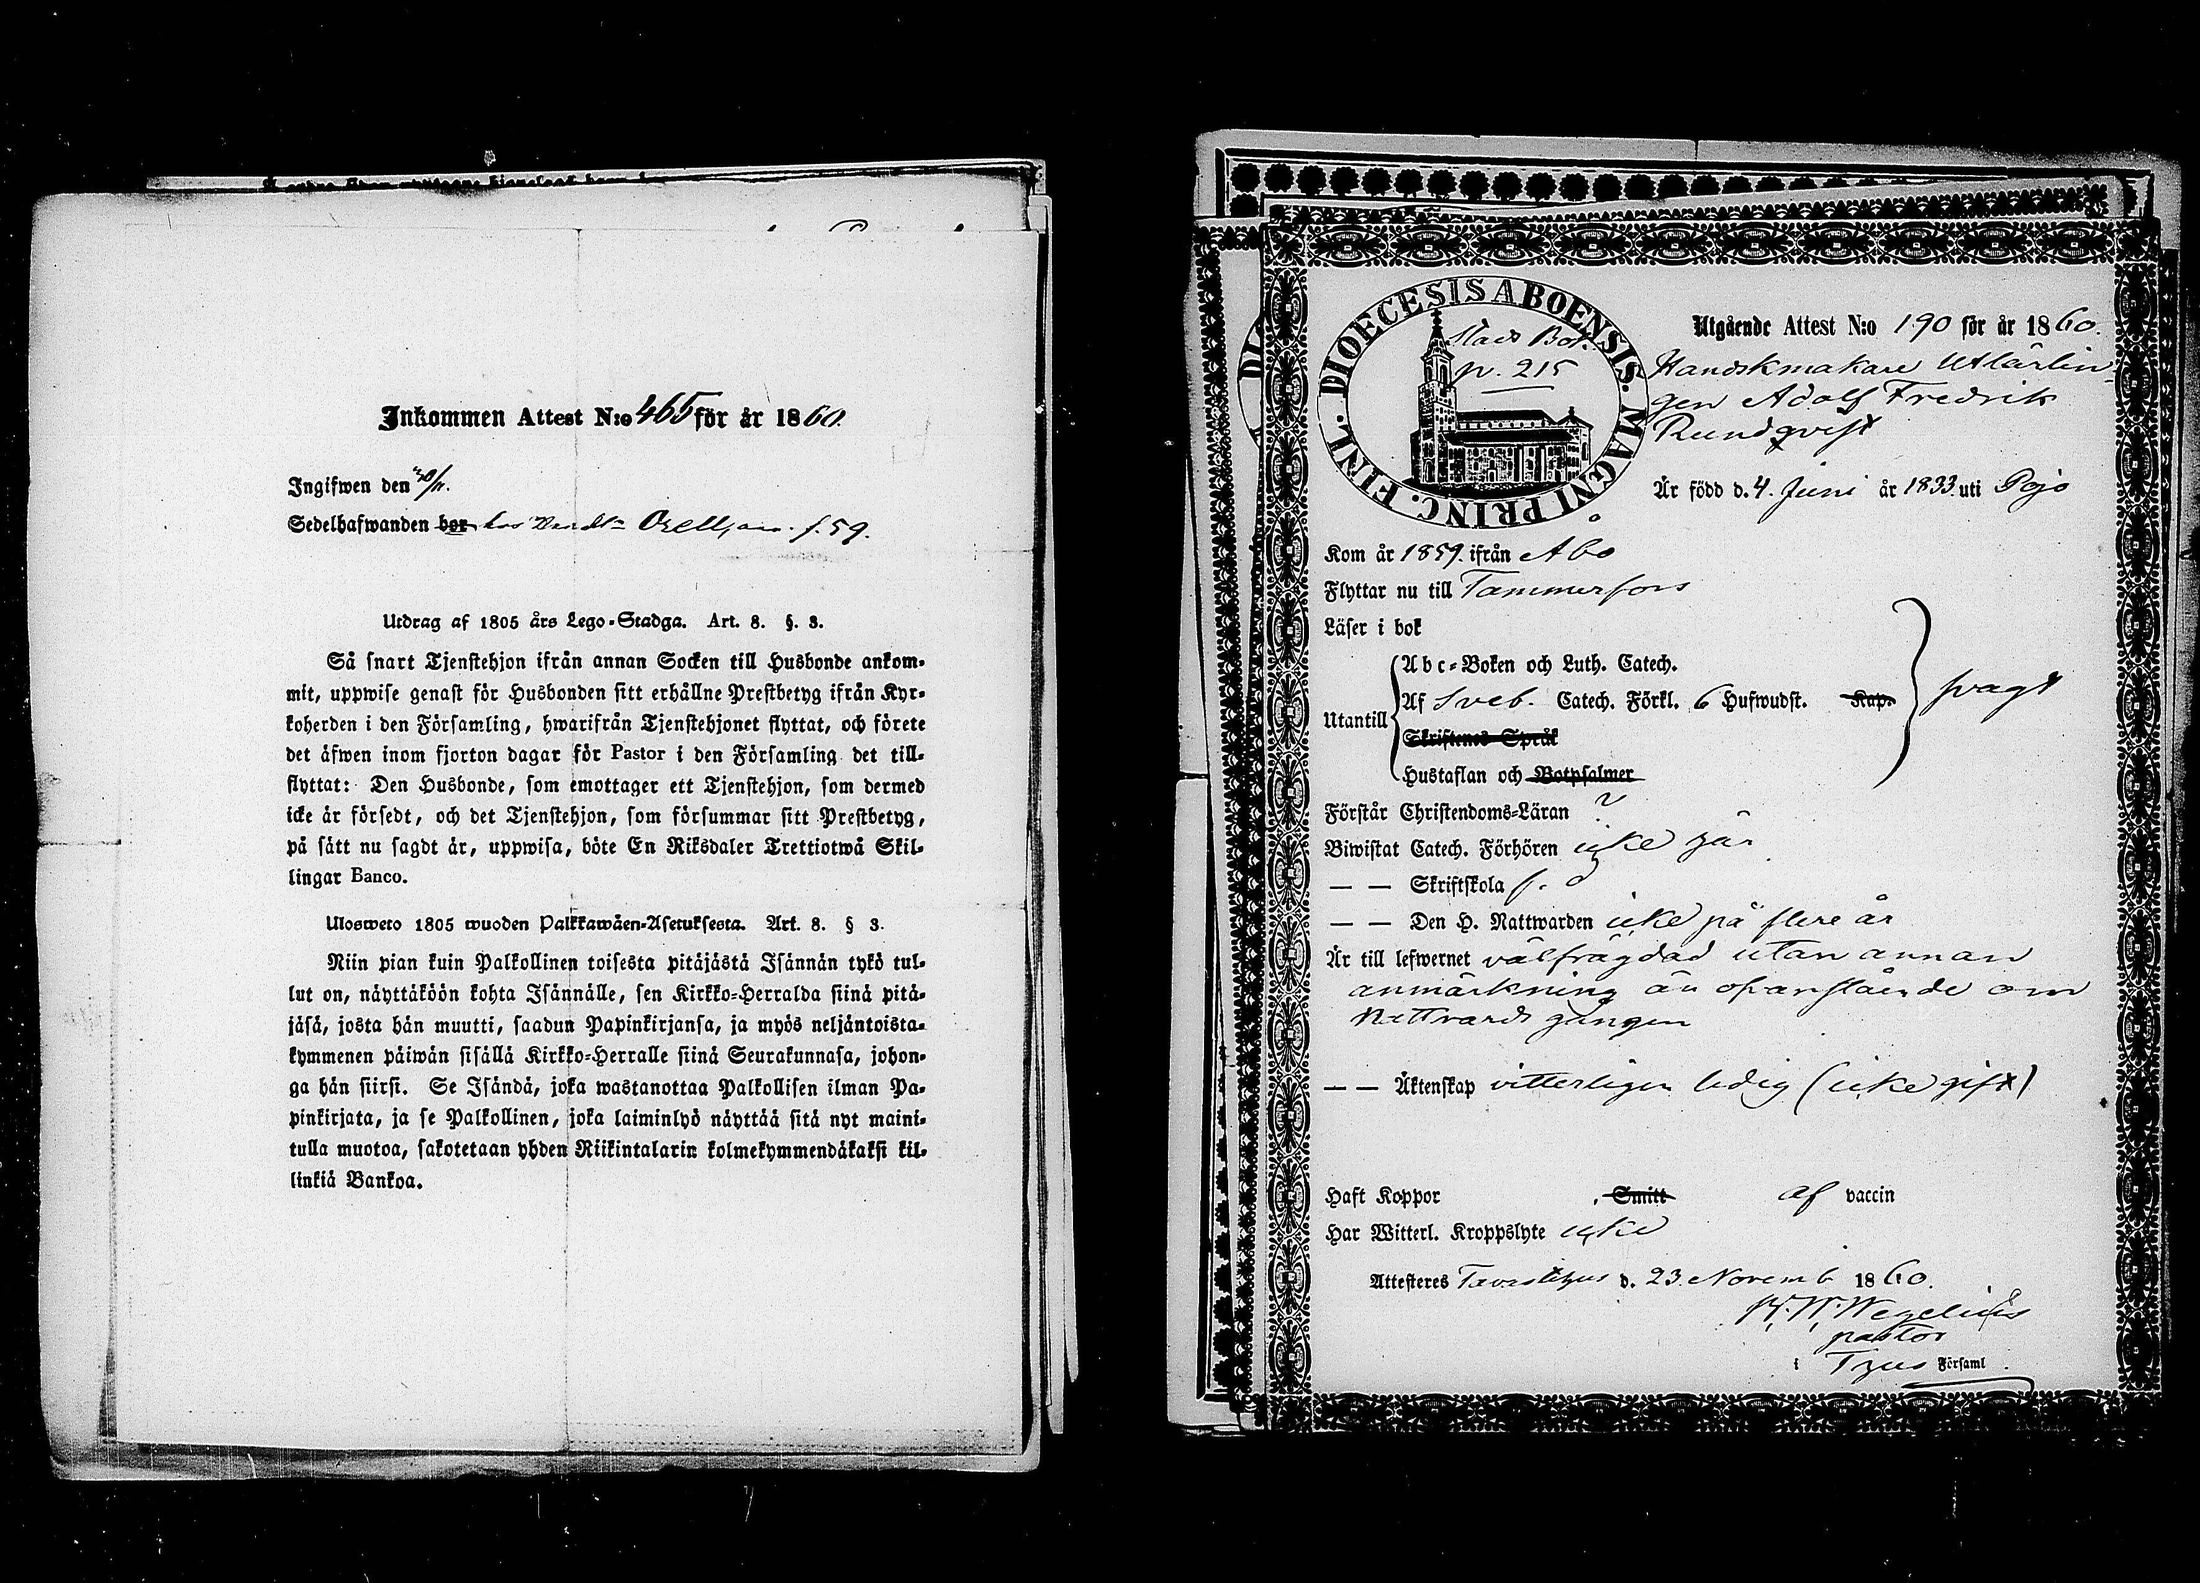 Inkommen Attest N:o 465 för år 1860.
Ingifwen den 30/11.
Sedelhafwanden bor hos f. 59.
Utdrag af 1805 års Lego-Stadga. Art. 8. §. 3.
Så snart Tjenstehjon ifrån annan Socken till Husbonde ankom-
mit, uppwise genast för Husbonden sitt erhållne Prestbetyg ifrån Kyr-
koherden i den Församling, hwarifrån Tjenstehjonet flyttat, och förete
det äfwen inom fjorton dagar för Pastor i den Församling det till-
flyttat: Den Husbonde, som emottager ett Tjenstehjon, som dermed
icke är försedt, och det Tjenstehjon, som försummar sitt Prestbetyg,
på sätt nu sagdt är, uppwisa, böte En Riksdaler Trettiotwå Skil-
lingar Banco.
Ulosweto 1805 wuoden Palkkawäen-Asetuksesta. Art. 8. § 3.
Niin pian kuin Palkollinen toisesta pitäjästä Isännän tykö tul-
lut on, näyttäköön kohta Isännälle, sen Kirkko-Herralda siinä pitä-
jäsä, josta hän muutti, saadun Papinkirjansa, ja myös neljäntoista-
kymmenen päiwän sisällä Kirkko-Herralle siinä Seurakunnasa, johon-
ga hän siirsi. Se Isändä, joka wastanottaa Palkollisen ilman Pa-
pinkirjata, ja se Palkollinen, joka laiminlyö näyttää sitä nyt maini-
tulla muotoa, sakotetaan yhden Riikintalarin kolmekymmendäkaksi kil-
linkiä Bankoa.
DIOECESIS ABOENSIS. MAGNI PRINC. FINL.
Stads Bok.
p. 215
Utgående Attest N:o 190 för år 1860.
Handskmakare Utlärlin-
gen Adolf Fredrik
Rundqvist
Är född d. 4. Juni år 1833. uti Pojo
Kom år 1859. ifrån Åbo
Flyttar nu till Tammerfors
Läser i bok
Utantill
Abc-Boken och Luth. Catech.
Af Sveb. Catech. Förkl. 6 Hufwudst. Kap.
svagt
Skriftenes Språk
Hustaflan och Botpsalmer
Förstår Christendoms-Läran ?
Biwistat Catech. Förhören icke här
— — Skriftskola
— — Den H. Nattwarden icke på flere år
Är till lefwernet välfrägdad utan annan
anmärkning än ofanstående om
Nattvards gången
— — Äktenskap vitterligen ledig (icke gift)
Haft Koppor , Smitt af vaccin
Har Witterl. Kroppslyte icke
Attesteres Tavastehus d. 23. Novemb 1860.
Wegelius
pastor
i Thus Församl.